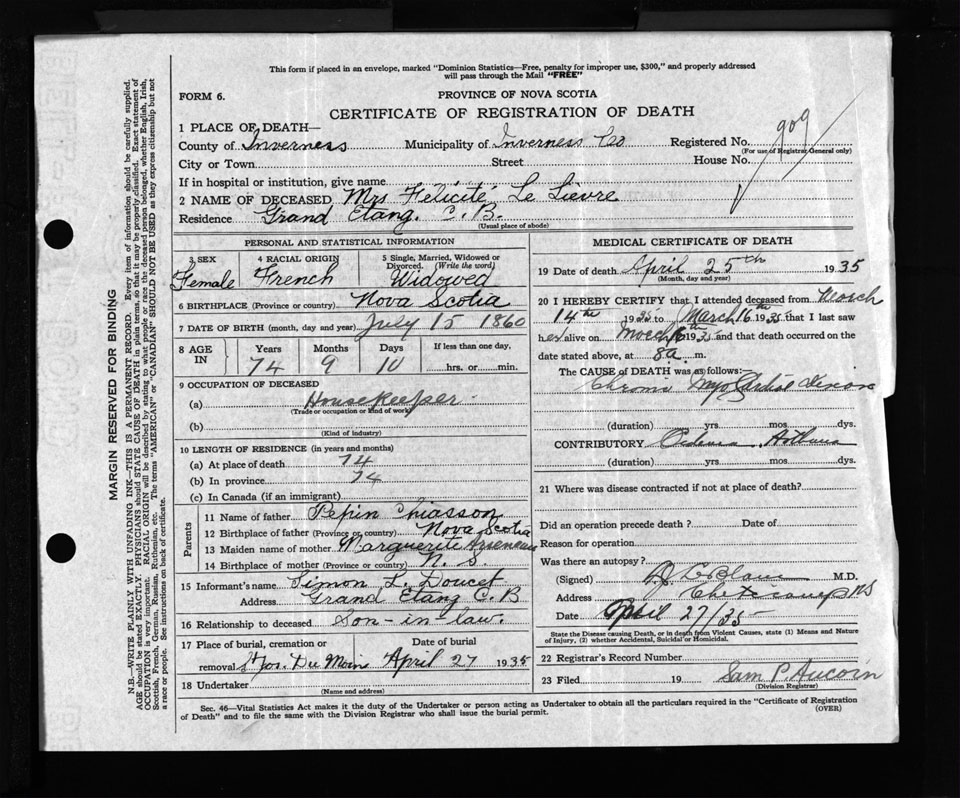 This form if placed in an envelope, marked "Dominion Statistics—Free, penalty for improper use, $300," and properly addressed
will pass through the Mail "FREE"
FORM 6.
PROVINCE OF NOVA SCOTIA
CERTIFICATE OF REGISTRATION OF DEATH
1 PLACE OF DEATH—
County of Inverness Municipality of Inverness Co Registered No. 909
(For use of Registrar General only)
City or Town Street House No.
If in hospital or institution, give name
2 NAME OF DECEASED Mrs Félicité Le Lievre
Residence Grand Etang. C. B.
(Usual place of abode)
PERSONAL AND STATISTICAL INFORMATION
3 SEX 4 RACIAL ORIGIN 5 Single, Married, Widowed or
Divorced. (Write the word)
Female French Widowed
6 BIRTHPLACE (Province or country) Nova Scotia
7 DATE OF BIRTH (month, day and year) July 15 1860
8 AGE IN Years Months Days If less than one day,
74 9 10 hrs. or min.
9 OCCUPATION OF DECEASED
(a) Housekeeper
(Trade or occupation or kind of work)
(b)
(Kind of industry)
10 LENGTH OF RESIDENCE (in years and months)
(a) At place of death 74
(b) In province 74
(c) In Canada (if an immigrant)
Parents
11 Name of father Pepin Chiasson
12 Birthplace of father (Province or country) Nova Scotia
13 Maiden name of mother Marguerite Arseneau
14 Birthplace of mother (Province or country) N. S.
15 Informant's name Simon L. Doucet
Address Grand Etang C. B
16 Relationship to deceased Son-in-law.
17 Place of burial, cremation or Date of burial
removal St Jos. Du Moin April 27 1935
18 Undertaker
(Name and address)
MEDICAL CERTIFICATE OF DEATH
19 Date of death April 25th 1935
(Month, day and year)
20 I HEREBY CERTIFY that I attended deceased from March
14th 1935 to March 16th 1935 that I last saw
her alive on March 16th 1935 and that death occurred on
date stated above, at 8a. m.
The CAUSE OF DEATH was as follows:
Chronic
(duration) yrs mos. dys.
CONTRIBUTORY Asthma
(duration) yrs. mos. dys.
21 Where was disease contracted if not at place of death?
Did an operation precede death? Date of
Reason for operation
Was there an autopsy?
(Signed) M.D.
Address Cheticamp NS
Date April 27/35
State the Disease causing Death, or in death from Violent Causes, state (1) Means and Nature
of Injury, (2) whether Accidental, Suicidal or Homicidal.
22 Registrar's Record Number
23 Filed 19 Sam P. Aucoin
(Division Registrar)
Sec. 46—Vital Statistics Act makes it the duty of the Undertaker or person acting as Undertaker to obtain all the particulars required in the "Certificate of Registration
of Death" and to file the same with the Division Registrar who shall issue the burial permit. (OVER)
MARGIN RESERVED FOR BINDING
N.B.—WRITE PLAINLY WITH UNFADING INK—THIS IS A PERMANENT RECORD. Every item of information should be carefully supplied.
AGE should be stated EXACTLY. PHYSICIANS should STATE CAUSE OF DEATH in plain terms, so that it may be properly classified. Exact statement of
OCCUPATION is very important. RACIAL ORIGIN will be described by stating to what people or race the deceased person belonged, whether English, Irish,
Scottish, French, German, Russian, Ruthenian, etc. The terms "AMERICAN" or "CANADIAN" SHOULD NOT BE USED as they express citizenship but not
a race or people. See instructions on back of certificate.